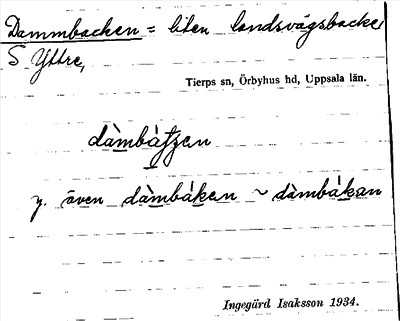 Dammbacken = liten landsvägsbacke
S Yttre,
Tierps sn, Örbyhus hd, Uppsala län.
dàmbáʃʒen
y. även dàmbáken ~ dàmbákan
Ingegärd Isaksson 1934.